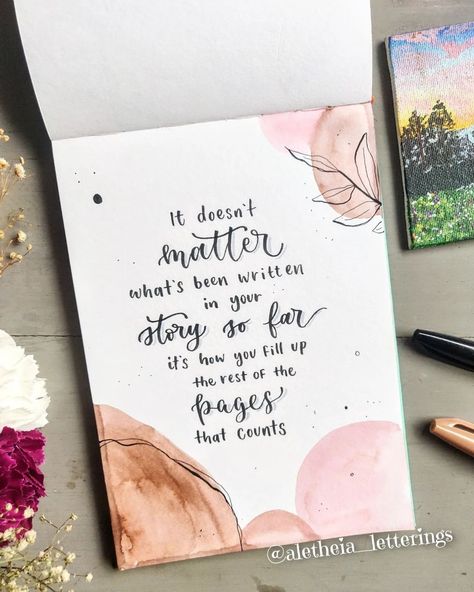 It doesn't
matter
what's been written
in your
story so far
it's how you fill up
the rest of the
pages
that counts
@aletheia_letterings